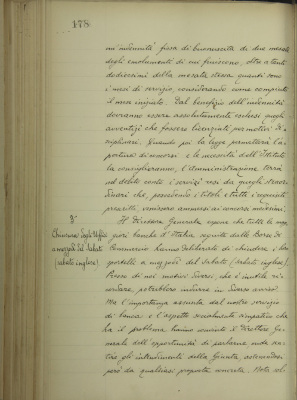 178
un'indennità fissa di buonuscita di due mesate
degli emolumenti di cui fruiscono, oltre a tanti
dodicesimi della mesata stessa quanti sono
i mesi di servizio, considerando come compiuto
il mese iniziato. Dal beneficio dell'indennità
dovranno essere assolutamente esclusi quegli
avventizi che fossero licenziati per motivi di
sciplinari. Quando poi la legge permetterà l'a
pertura di concorsi e le necessità dell'Istituto
lo consiglieranno, l'Amministrazione terrà
nel debito conto i servizi resi da quegli straor
dinari che, possedendo i titoli e tutti i requisiti
prescritti venissero ammessi ai concorsi medesimi.
8°
Chiusura degli Uffici
a mezzodì del Sabato
(sabato inglese)
Il Direttore Generale espone che tutte le mag
giori banche d'Italia seguite dalle Borse di
Commercio hanno deliberato di chiudere i loro
sportelli a mezzodì del Sabato (sabato inglese).
Presso di noi motivi diversi, che è inutile ri
cordare, potrebbero indurre in diverso avviso.
Ma l'importanza assunta dal nostro servizio
di banca e l'aspetto socialmente simpatico che
ha il problema hanno convinto il Direttore Ge
nerale dell'opportunità di parlarne onde sen
tire gli intendimenti della Giunta, astenendosi
però da qualsiasi proposta concreta. Nota sol